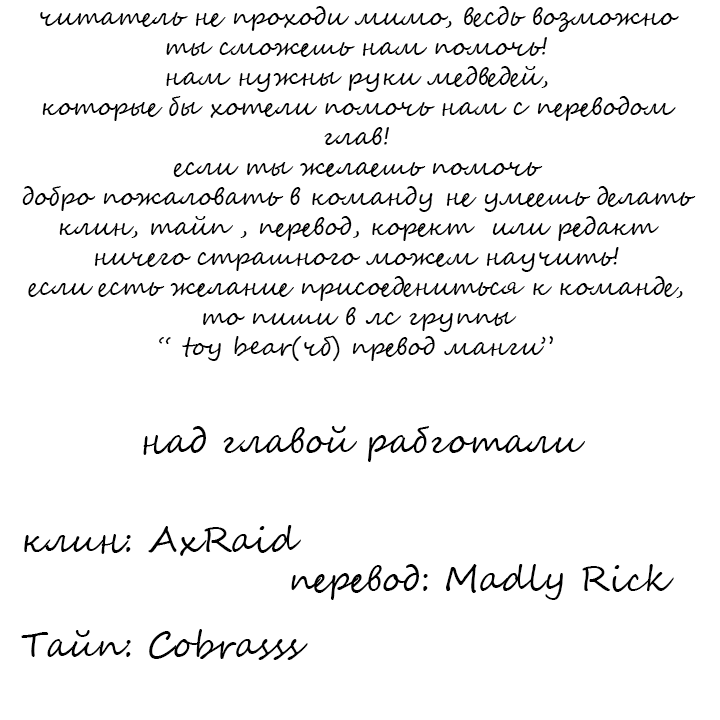 читатель не проходи мимо, весдь возможно
ты сможешь нам помочь!
нам нужны руки медведей,
которые бы хотели помочь нам с переводом
глав!
если ты желаешь помочь
добро пожаловать в команду не умеешь делать
клин, тайп , перевод, корект или редакт
ничего страшного можем научить!
если есть желание присоедениться к команде,
то пиши в лс группы
“ toy bear(чб) превод манги”
над главой рабготали
клин: AxRaid
перевод: Madly Rick
Тайп: Cobrasss